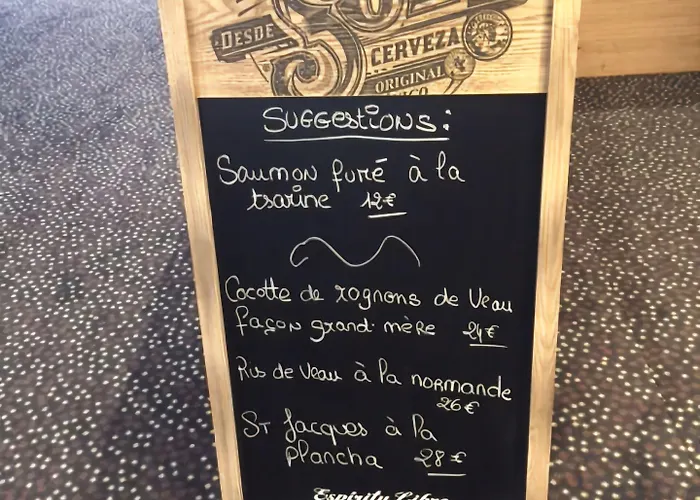 DESDE
Sol
CERVEZA
ORIGINAL
SUGGESTIONS:
Saumon fumé à la
tsarine 12€
Cocotte de rognons de Veau
façon grand-mère 24€
Ris de Veau à la normande
26€
ST Jacques à la
plancha 28€
Espiritu Libre